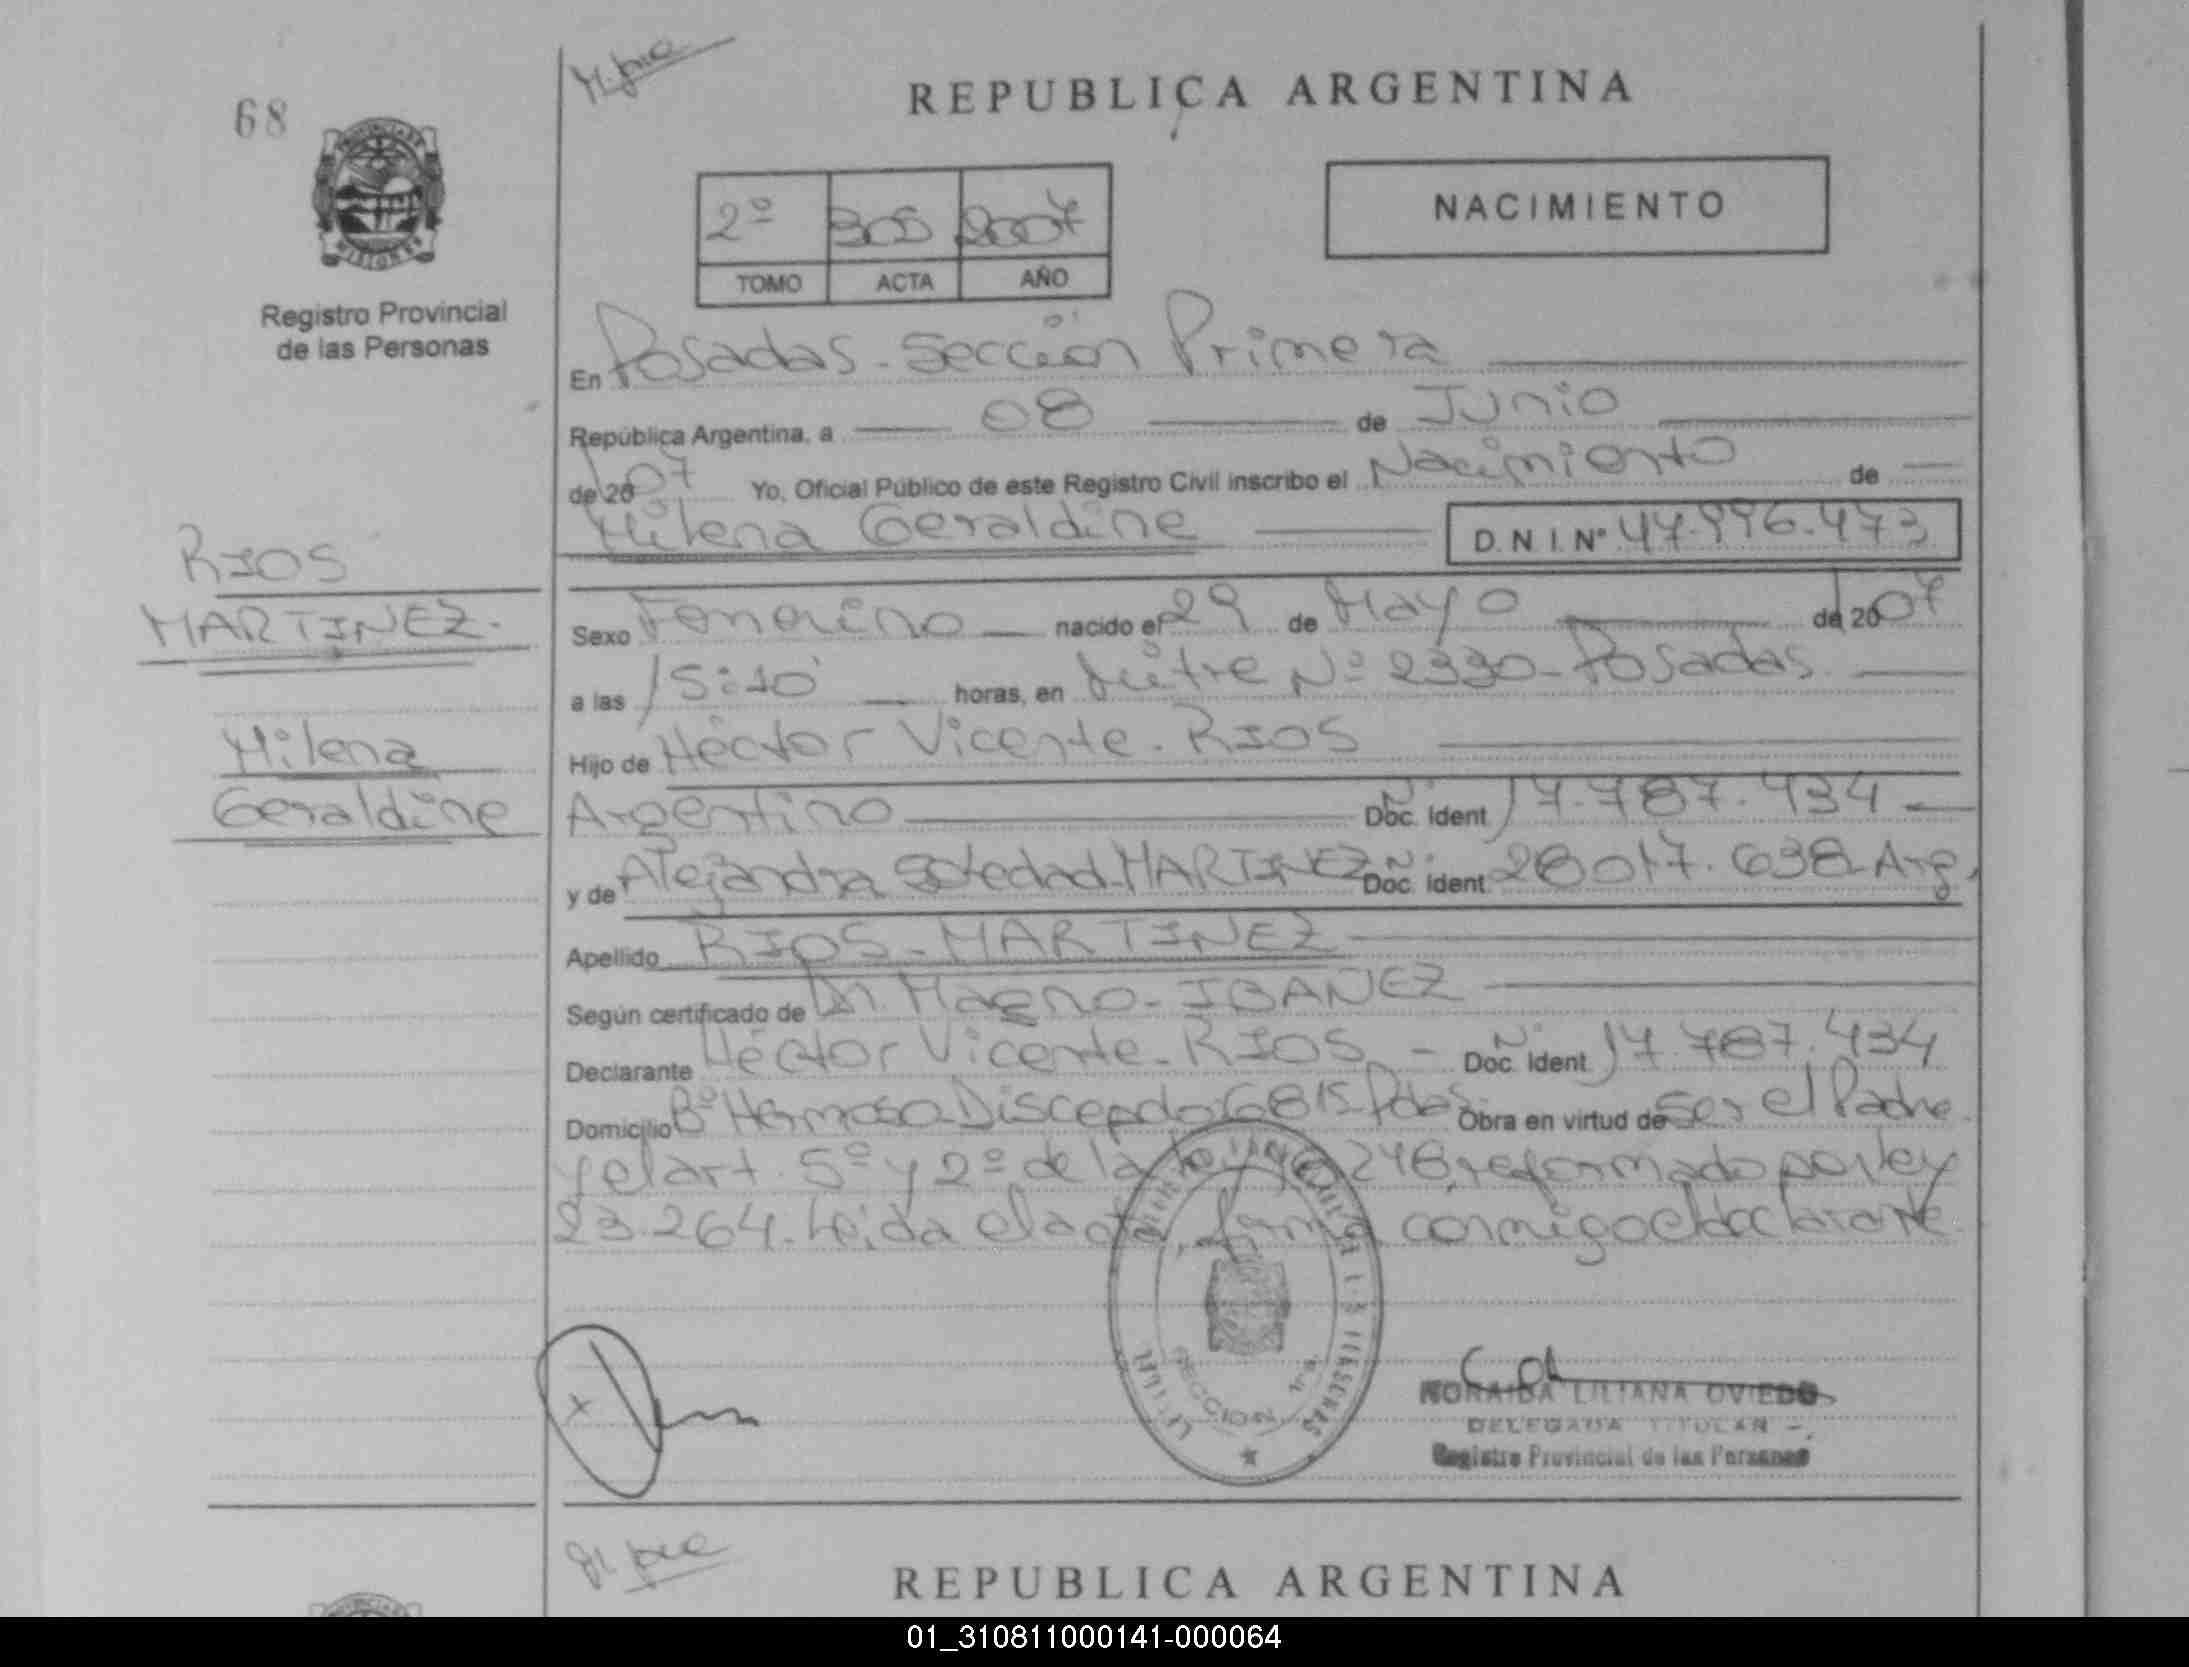 68
REPUBLICA ARGENTINA
NACIMIENTO
2º 305 2007
TOMO ACTA AÑO
Registro Provincial
de las Personas
En Posadas - Sección Primera
República Argentina, a 08 de Junio
de 2007 Yo, Oficial Público de este Registro Civil inscribo el Nacimiento de
Milena Geraldine D.N.I. Nº 47.996.473
RIOS
MARTINEZ.
Milena
Geraldine
Sexo Femenino nacido el 29 de Mayo de 2007
a las 15:10 horas, en Mitre Nº 2330 - Posadas
Hijo de Héctor Vicente - RIOS
Argentino Nº Doc. Ident. 17.787.434
y de Alejandra Soledad MARTINEZ Nº Doc. Ident. 28017.638 - Arg.
Apellido RIOS - MARTINEZ
Según certificado de Dr. Magno - IBAÑEZ
Declarante Héctor Vicente - RIOS - Nº Doc. Ident. 17.787.434
Domicilio Bº Hermoso Discepolo 6815 Pdas Obra en virtud de ser el Padre
y el art. 5º y 2º de la ley 18.248, reformado por ley
23.264. Leida el acta, firma conmigo el declarante
SECCION 1ra.
NORAIDA LILIANA OVIEDO
DELEGADA TITULAR
Registro Provincial de las Personas
REPUBLICA ARGENTINA
01_310811000141-000064